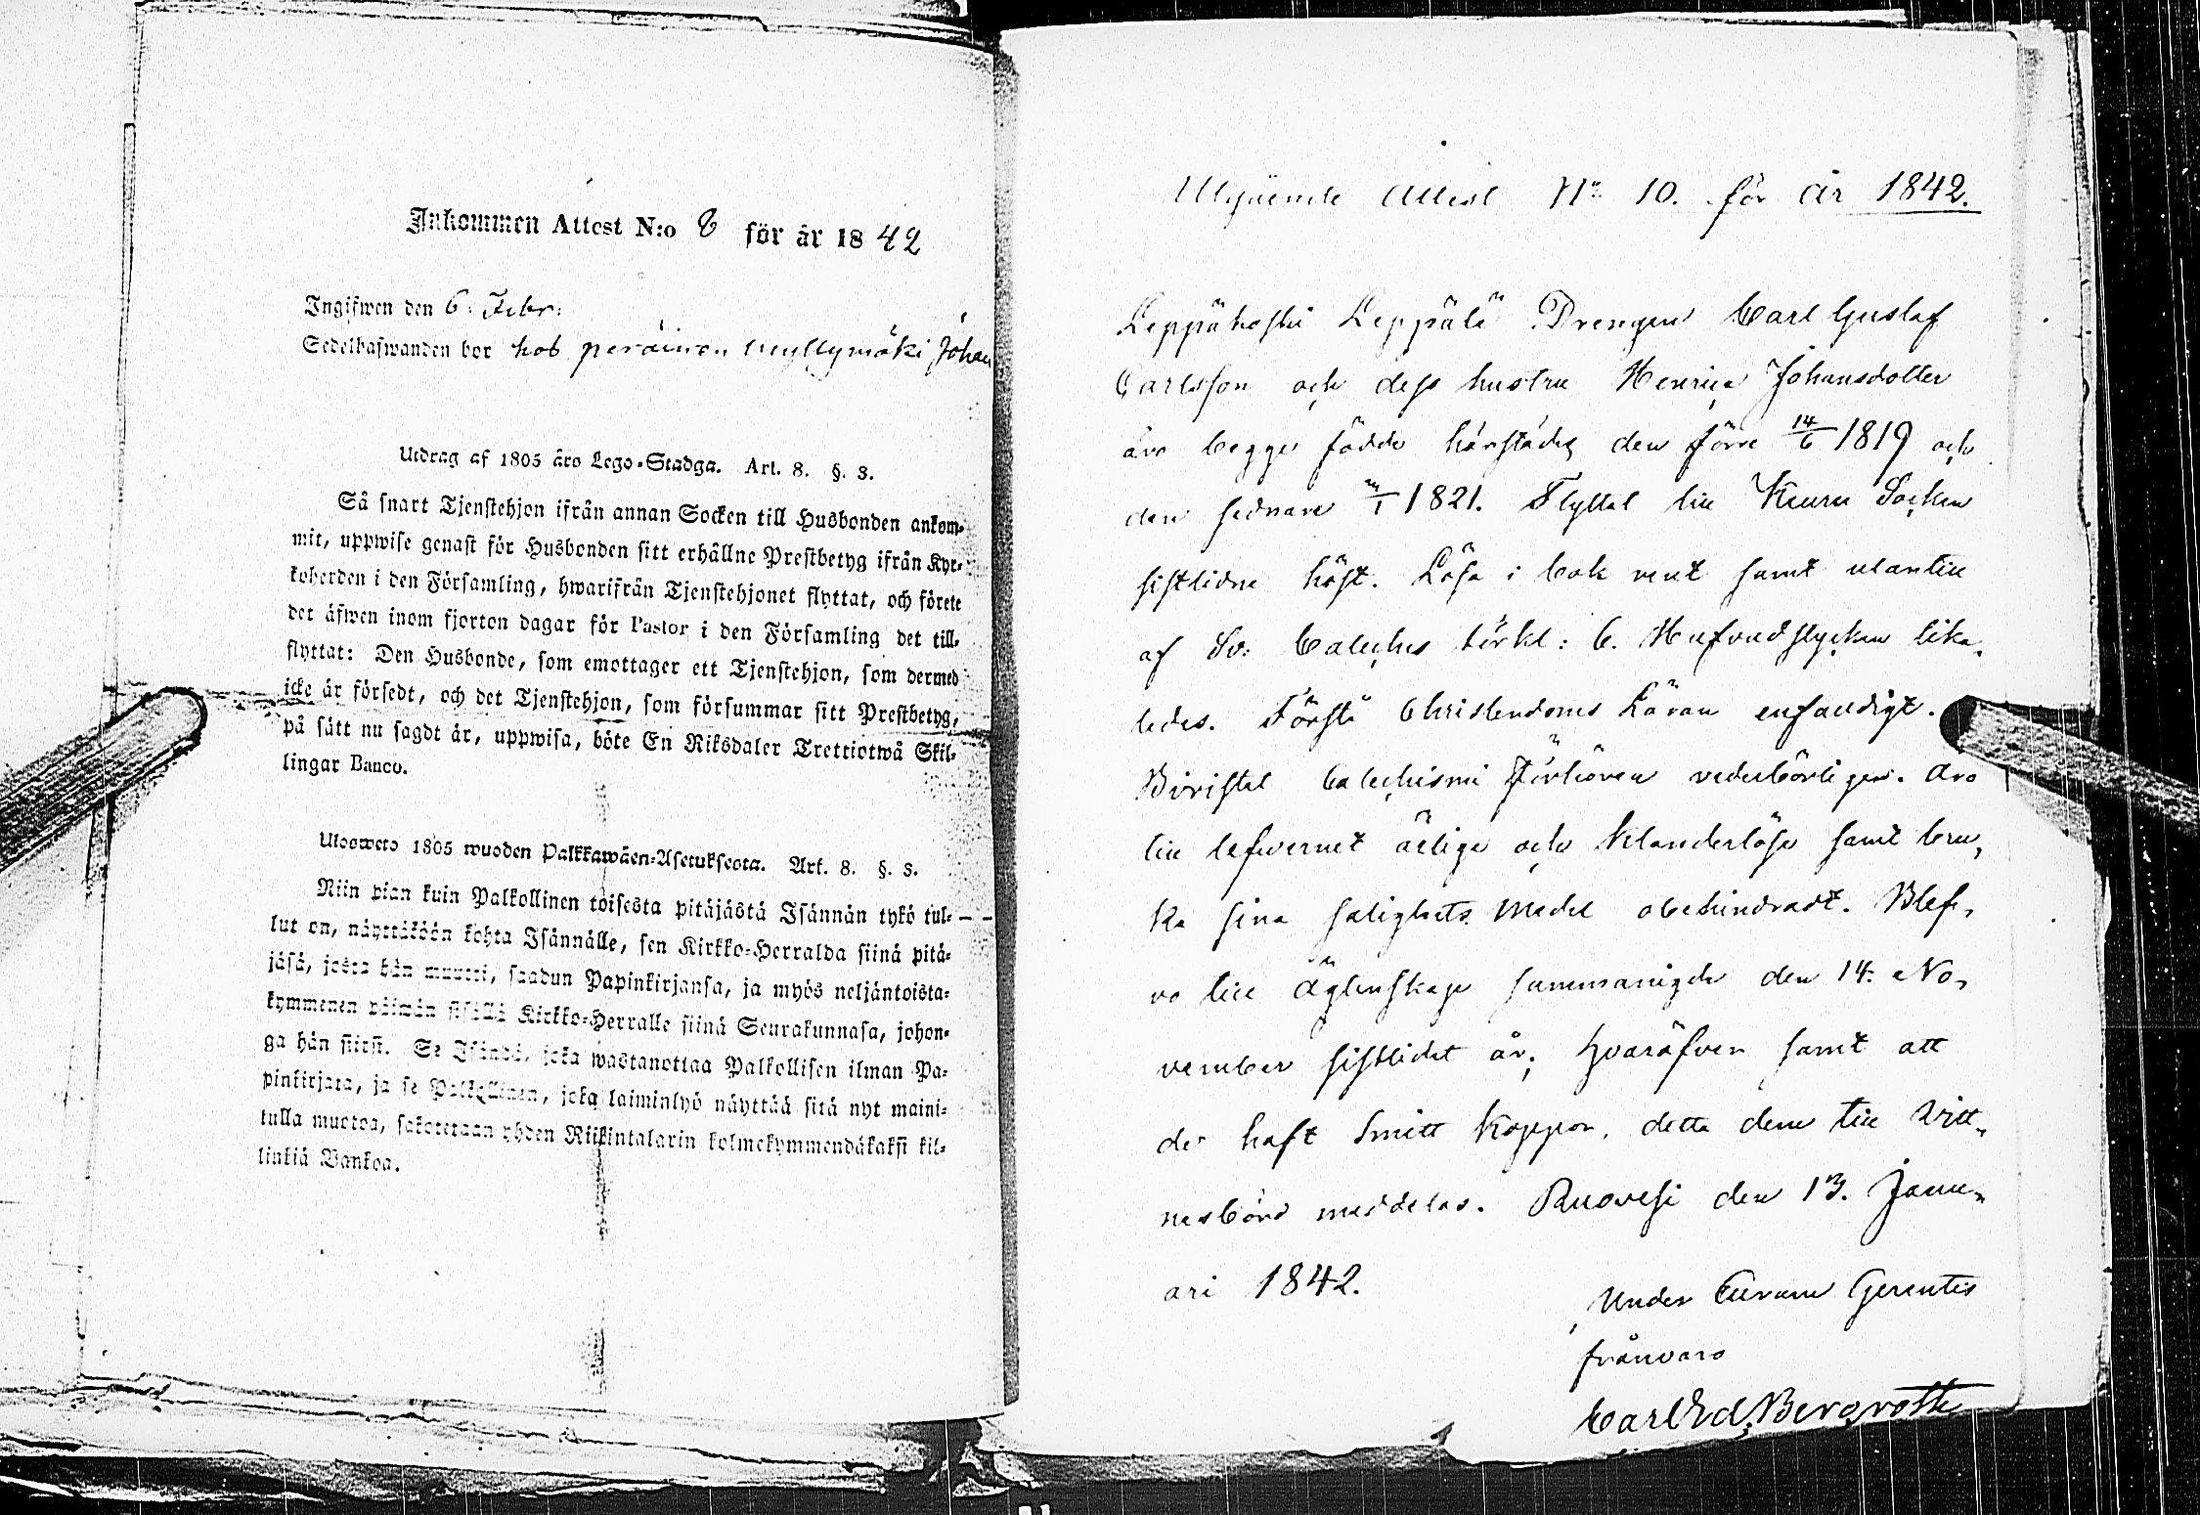 Inkommen Attest N:o 8 för år 1842
Ingifwen den 6. Febr:
Sedelhafwanden bor hos peräinen myllymäki Johan
Utdrag af 1805 års Lego-Stadga. Art. 8. §. 3.
Så snart Tjenstehjon ifrån annan Socken till Husbonden ankom-
mit, uppwise genast för Husbonden sitt erhållne Prestbetyg ifrån Kyr-
koherden i den Församling, hwarifrån Tjenstehjonet flyttat, och förete
det äfwen inom fjorton dagar för Pastor i den Församling det till-
flyttat: Den Husbonde, som emottager ett Tjenstehjon, som dermed
icke är försedt, och det Tjenstehjon, som försummar sitt Prestbetyg,
på sätt nu sagdt är, uppwisa, böte En Riksdaler Trettiotwå Skil-
lingar Banco.
Uloswets 1805 wuoden Palkkawäen-Asetuksesta. Art. 8. §. 3.
Niin pian kuin Palkollinen toisesta pitäjästä Isännän tykö tul-
lut on, näyttäköön kohta Isännälle, sen Kirkko-Herralda siinä pitä-
jäsä, josta hän muutti, saadun Papinkirjansa, ja myös neljäntoista-
kymmenen päiwän sisällä Kirkko-Herralle siinä Seurakunnasa, johon-
ga hän siirst. Se Isändä, joka wastanottaa Palkollisen ilman Pa-
pinkirjata, ja se Palkollinen, joka laiminlyö näyttää sitä nyt maini-
tulla muotoa, sakotetaan yhden Riikintalarin kolmekymmendäkaksi kil-
linkiä Bankoa.
Utgående Attest No 10. för år 1842.
Leppäkoski Leppälä Drengen Carl Gustaf
Carlsson och dess hustru Henrica Johansdotter
äro begge födde härstädes den förre 14/6 1819 och
den sednare /1 1821. Flyttat till Keuru Socken
sistlidne höst. Läsa i bok rent samt utantill
af Sv: Cateches förkl: 6. Hufvudstycken lika-
ledes. Förstå Christendoms Läran enfaldigt.
Bivistat Catechismi förhören vederbörligen. Äro
till lefvernet ärlige och klanderlöse samt bru-
ka sina salighets medel obehindradt. Blef-
vo till Äktenskap sammanvigde den 14. No-
vember sistlidet år; hvaräfven samt att
de haft Smitt Koppor, detta dem till vitt-
nesbörd meddelas. Ruovesi den 13. Janu-
ari 1842.
Under Curam Gerentis
frånvaro
Carl Ed. Bergroth